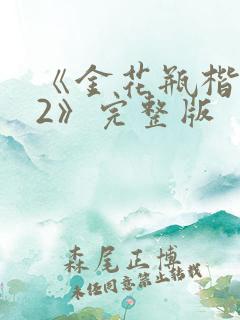 《金花瓶楷
2》完整版
森尾正博
未经同意禁止转载